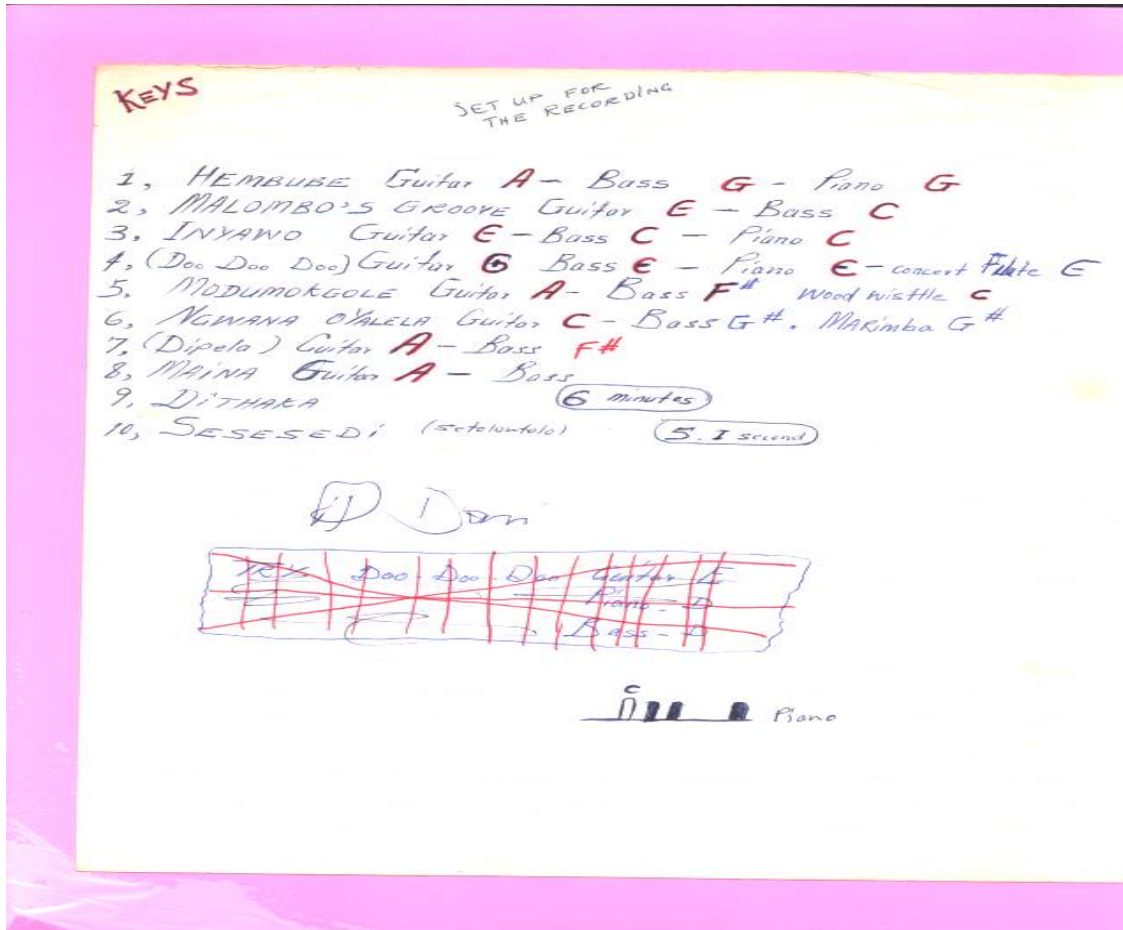 KEYS
SET UP FOR
THE RECORDING
1, HEMBUBE Guitar A - Bass G - Piano G
2, MALOMBO'S GROOVE Guitar E - Bass C
3. INYAWO Guitar E - Bass C - Piano C
4, (Doo Doo Doo) Guitar G Bass E - Piano E - concert Fulate E
5. MODUMOKGOLE Guitar A - Bass F# Wood wisttle C
6, NGWANA OYALELA Guitar C - Bass G#. MARimba G#
7, (Dipela) Guitar A - Bass F#
8, MAINA Guitar A - Bass
9. DiTHAKA 6 minutes
10, SESESEDi 5. I second
TRY Doo - Doo - Doo Guitar E
Piano - D
Bass - D
C
Piano